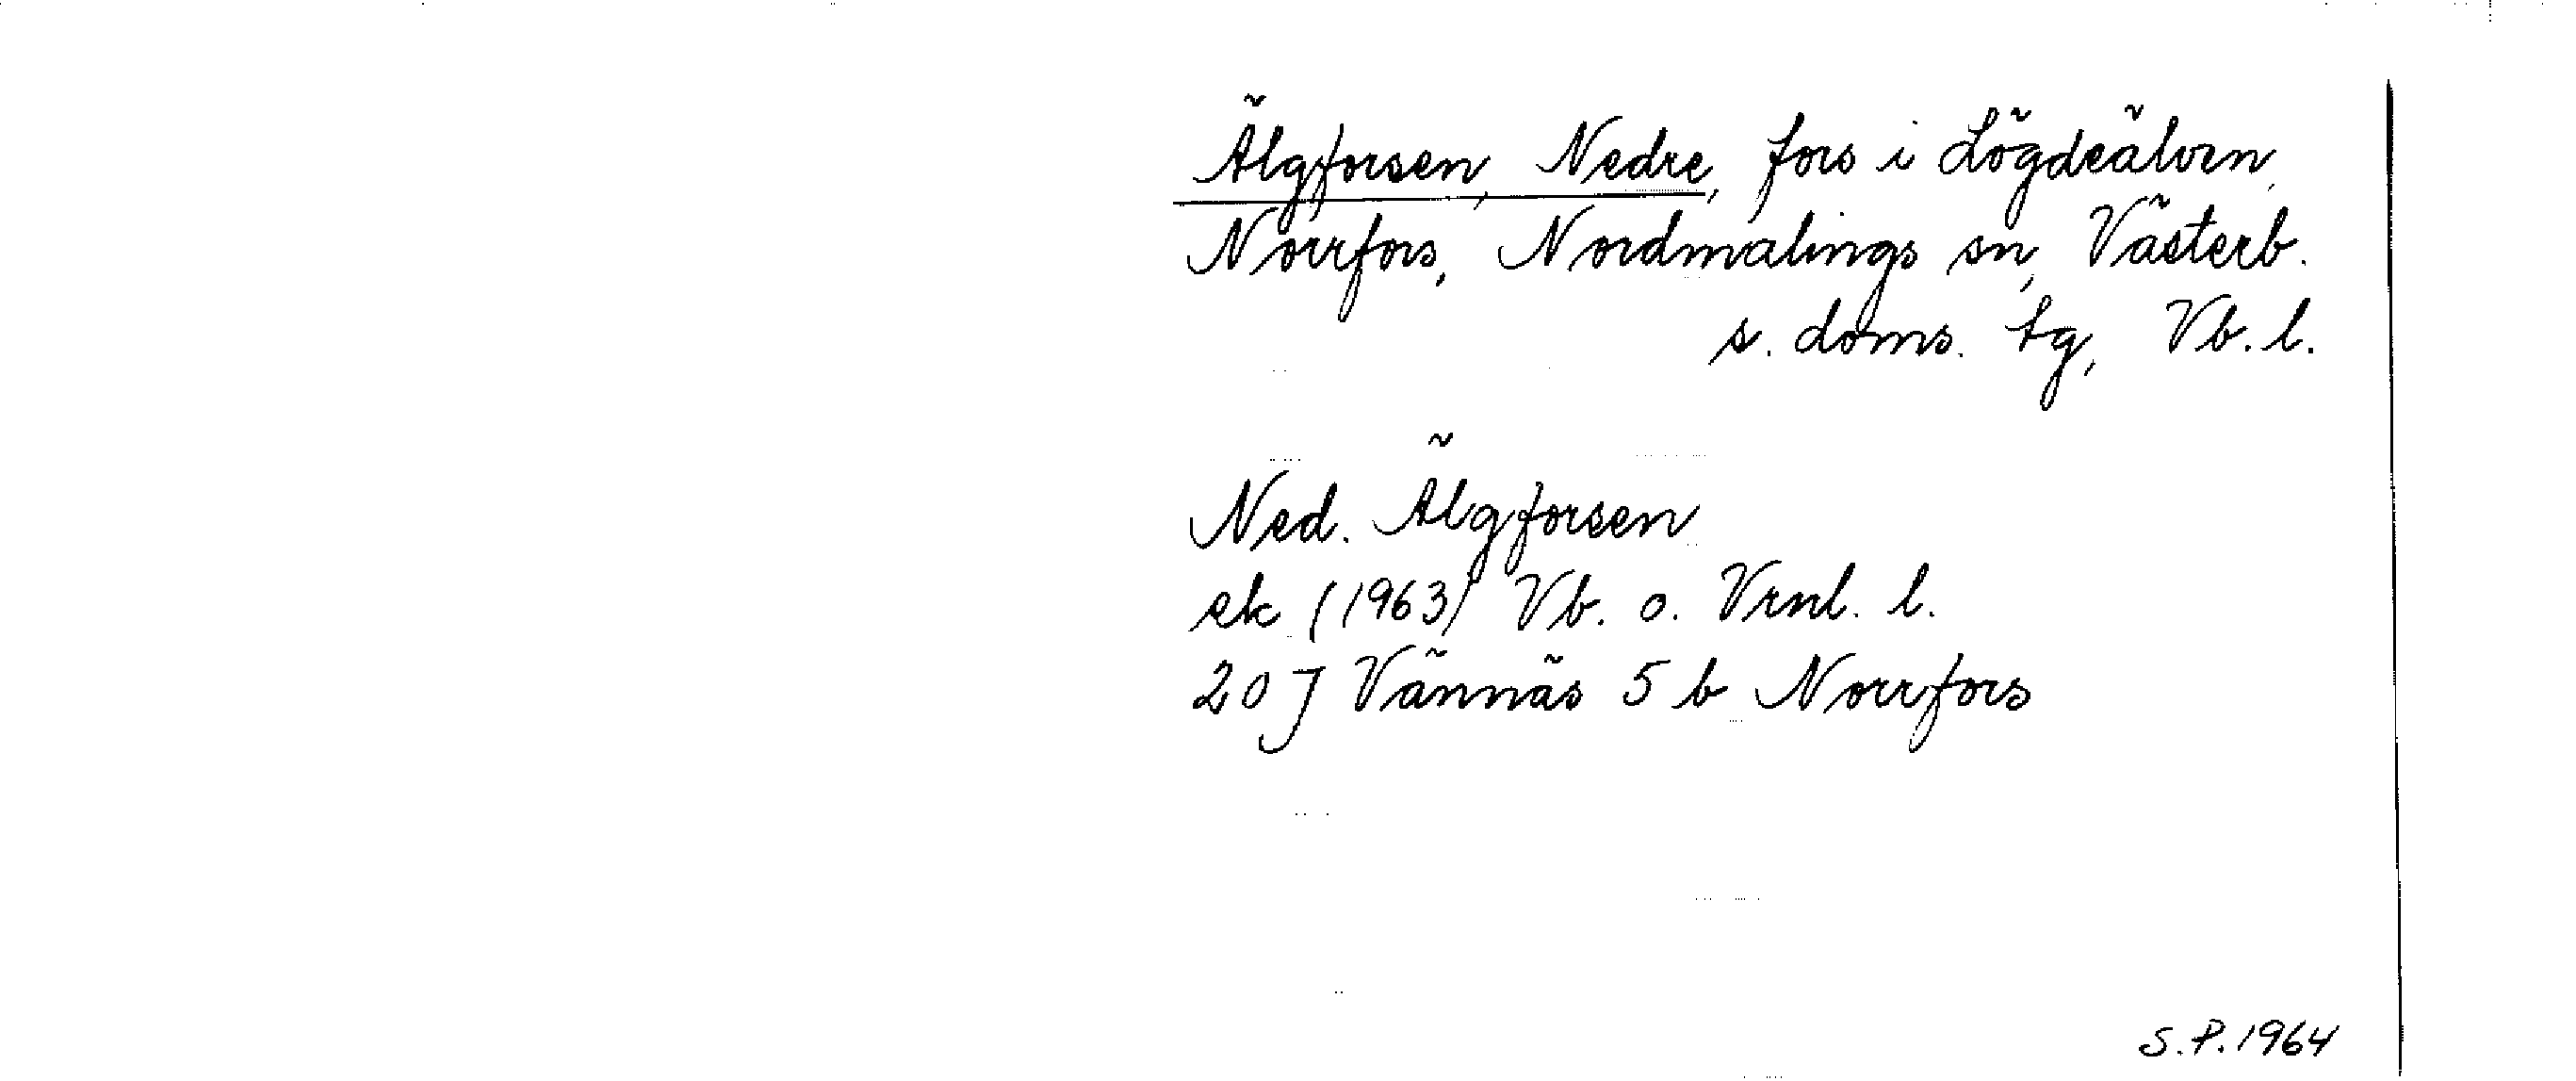 Älgforsen, Nedre, fors i Lögdeälven,
Norrfors, Nordmalings sn, Västerb.
s. doms. tg, Vb. l.
Ned. Älgforsen
ek (1963) Vb. o. Vrnl. l.
20 J Vännäs 5 b Norrfors
S.P. 1964